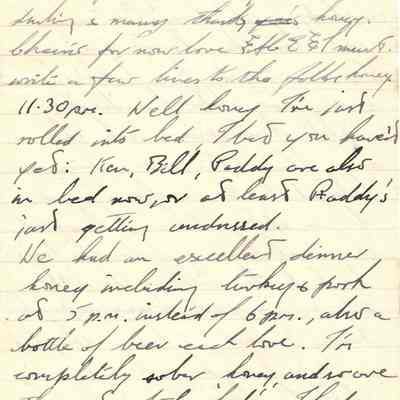 darling & many thanks honey.
for now love & I must
write a few lines to the folks honey
11.30 pm. Well honey I'm just
rolled into bed, I bet you haven't
yet: Ken, Bill, Paddy are also
in bed now, or at least Paddy's
just getting undressed.
We had an excellent dinner
honey including turkey & pork
at 5 p.m. instead of 6 pm., also a
bottle of beer each love. I'm
completely sober honey, and so are